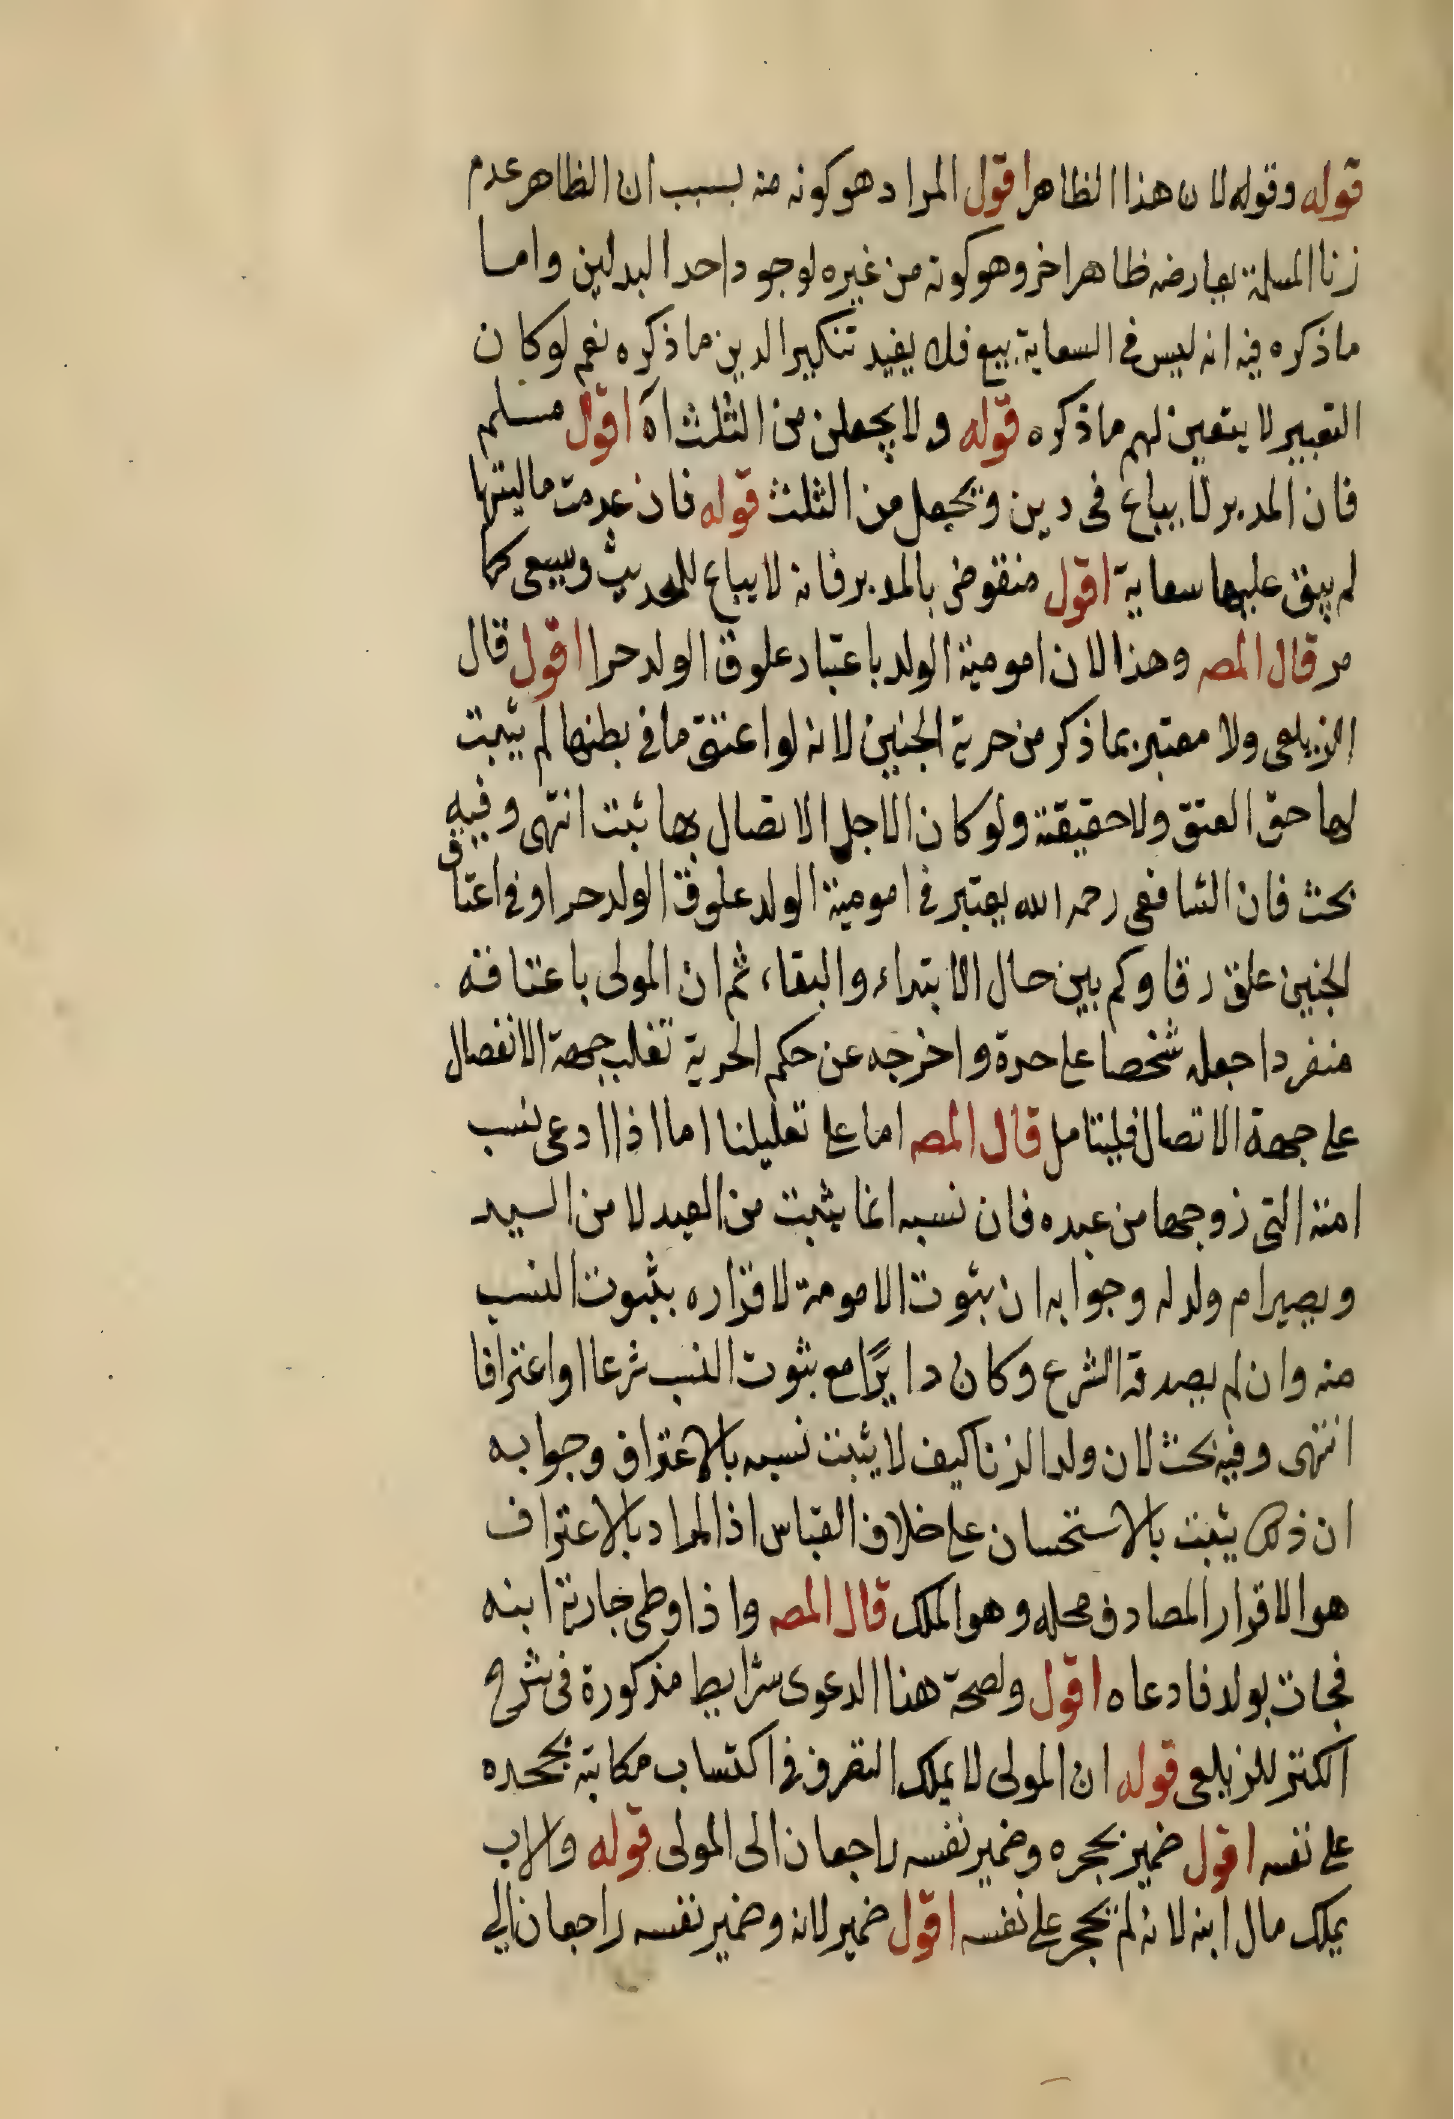 قوله وقوله لان هذا الظاهر اقول المراد هو كونه منه بسبب ان الظاهر عدم
زنا المسلمة يعارضه ظاهر اخر وهو كونه من غيره لوجود احد البدلين واما
ما ذكره فيه انه ليس في السعاية بيع فلا يفيد تنكير الدين ما ذكره نعم لو كان
التعبير لا يتعين لهم ما ذكره قوله ولا يجعلن من الثلث اه اقول مسلم
فان المدبر لا يباع في دين ويجعل من الثلث قوله فان عدمت ماليتها
لم يبق عليها سعاية اقول منقوض بالمدبر فانه لا يباع للحديث ويسعى كما
مر قال المصه وهذا لان امومية الولد باعتبار علوق الولد حرا اقول قال
الزيلعي ولا معتبر بما ذكر من حرية الجنين لانه لو اعتق ما في بطنها لم يثبت
لها حق العتق ولا حقيقته ولو كان لاجل الاتصال بها ثبت انتهى وفيه
بحث فان الشافعي رحمه الله يعتبر في امومية الولد علوق الولد حرا وفي اعتاق
الجنين علق رقا وكم بين حال الابتداء والبقاء ثم ان المولى باعتاقه
منفردا جعله شخصا على حدة واخرجه عن حكم الحرية تغلب جهة الانفصال
على جهة الاتصال فليتامل قال المصه اما على تعليلنا اما اذا ادعى نسب
امته التي زوجها من عبده فان نسبه انما يثبت من العبد لا من السيد
ويصير ام ولد له وجوابه ان ثبوت الامومة لاقراره بثبوت النسب
منه وان لم يصدقه الشرع وكان دايرًا مع ثبوت النسب شرعا او اعترافا
انتهى وفيه بحث لان ولد الزنا كيف لا يثبت نسبه بالاعتراف وجوابه
ان ذلك يثبت بالاستحسان على خلاف القياس اذ المراد بالاعتراف
هو الاقرار المصادف محله وهو الملك قال المصه واذا وطى جارية ابنه
فجات بولد فادعاه اقول ولصحة هذا الدعوى شرايط مذكورة في شرح
الكنز للزيلعي قوله ان المولى لا يملك التصرف في اكتساب مكاتبه بحجره
على نفسه اقول ضمير بحجره وضمير نفسه راجعان الى المولى قوله والاب
يملك مال ابنه لانه لم يحجر على نفسه اقول ضمير لانه وضمير نفسه راجعان الي